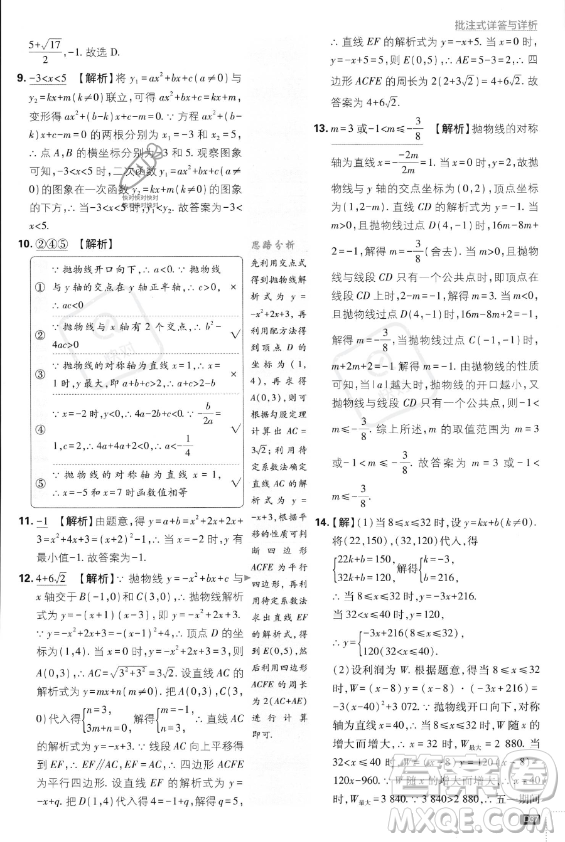 批注式详答与详析
5+√17
2
,-1.故选 D.
9. -3<x<5 【解析】将 y₁=ax²+bx+c(a≠0)与
y₂=kx+m(k≠0)联立,可得 ax²+bx+c=kx+m,
变形得 ax²+(b-k)x+c-m=0. ∵ 方程
ax²+(b-k)x+c-m=0 的两根为 x₁=-3 和 x₂=5,
∴ 点 A,B 的横坐标分别为-3 和 5. 观察图象
可知,当-3<x<5 时,二次函数 y₁=ax²+bx+c
的图象在一次函数 y₂=kx+m(k≠0)的图象
的下方,∴ 当-3<x<5 时,y₁<y₂. 故答案为-3<
x<5.
10. ②④⑤ 【解析】
① ∵ 抛物线开口向下,∴ a<0. ∵ 抛物线
与 y 轴的交点在 y 轴正半轴,∴ c>0, ×
∴ ac<0
② ∵ 抛物线与 x 轴有 2 个交点,∴ b²-
4ac>0 √
③ ∵ 抛物线的对称轴为直线 x=1,∴ x=
1 时,y 最大,即 a+b+c>2,∴ a+b+c>2 ×
④ ∵ x=-2 时,y<0,∴ 4a-2b+c<0. ∵ -b/2a=
1,c=2,∴ 4a+4a+2<0,∴ a<-1/4 √
⑤ ∵ 抛物线的对称轴为直线 x=1,
∴ x=-5 和 x=7 时函数值相等 √
11. -1 【解析】由题意,得 y=a+b=x²+2x+2x+
3=x²+4x+3=(x+2)²-1,∴ 当 x=-2 时,y 有
最小值-1. 故答案为-1.
12. 4+6√2 【解析】∵ 抛物线 y=-x²+bx+c 与
x 轴交于 B(-1,0)和 C(3,0),∴ 抛物线解析
式为 y=-(x+1)(x-3),即 y=-x²+2x+3.
∵ y=-x²+2x+3=-(x-1)²+4,∴ 顶点 D 的坐
标为(1,4). 当 x=0 时,y=-x²+2x+3=3,则
A(0,3),∴ AC=√3²+3²=3√2. 设直线 AC 的
解析式为 y=mx+n(m≠0). 把 A(0,3),C(3,
0)代入得{n=3, 3m+n=0,解得{m=-1, n=3,∴ 直线 AC 的解
析式为 y=-x+3. ∵ 线段 AC 向上平移得
到 EF,∴ EF∥AC,EF=AC,∴ 四边形 ACFE
为平行四边形. 设直线 EF 的解析式为
y=-x+q. 把 D(1,4)代入得 4=-1+q,解得q=5,
思路分析
先利用交点式
得到抛物线解
析式为 y=
-x²+2x+3,再
利用配方法得
到顶点 D 的
坐标为(1,
4),再求得
A(0,3),则可
根据勾股定理
计算出 AC=
3√2;利用待
定系数法确定
直线 AC 的解
析式为 y=
-x+3,根据平
移的性质可判
断四边形
ACFE 为平行
四边形,再求
出直线 EF
的解析式,得
到 E(0,5),然
后利用四边形
ACFE 的周长
为 2(AC+AE)
进行计算
即可.
∴ 直线 EF 的解析式为 y=-x+5. 当 x=0 时,
y=-x+5=5,则 E(0,5),∴ AE=5-3=2,∴ 四
边形 ACFE 的周长为 2(2+3√2)=4+6√2. 故
答案为 4+6√2.
13. m=3 或-1<m≤-3/8 【解析】抛物线的对称
轴为直线 x=--2m/2m=1. 当 x=0 时,y=2,∴ 抛
物线与 y 轴的交点坐标为(0,2),顶点坐标
为(1,2-m),直线 CD 的解析式为 y=-1. 当
m>0 且抛物线过点 D(4,-1)时,16m-8m+2=
-1,解得 m=-3/8(舍去). 当 m>0 且抛物
线与线段 CD 只有一个公共点时,即顶点在
线段 CD 上时,则 2-m=-1,解得 m=3. 当
m<0 且抛物线过点 D(4,-1)时,16m-8m+2=-1,
解得 m=-3/8,当抛物线过点 C(-1,-1)时,
m+2m+2=-1,解得 m=-1. 由抛物线的性质
可知,当|a|越大时,抛物线的开口越小,
∵ 抛物线与线段 CD 只有一个公共点,则-1<
m≤-3/8. 综上所述,m 的取值范围为 m=3
或-1<m≤-3/8. 故答案为 m=3 或-1<
m≤-3/8.
14. 【解】(1)当 8≤x≤32 时,设 y=kx+b(k≠0).
将(22,150),(32,120)代入,得
{22k+b=150, 32k+b=120,解得{k=-3, b=216,
∴ 当 8≤x≤32 时,y=-3x+216;
当 32<x≤40 时,y=120,
∴ y={-3x+216(8≤x≤32), 120(32<x≤40).
(2)设利润为 W. 根据题意,得当 8≤x≤32
时,W=(x-8)y=(x-8)·(-3x+216)=
-3(x-40)²+3 072. ∵ 抛物线开口向下,对称
轴为直线 x=40,∴ 当 8≤x≤32 时,W 随 x 的
增大而增大,∴ 当 x=32 时,W最大=2 880. 当
32<x≤40 时,W=(x-8)y=120(x-8)=
120x-960. ∵ W 随 x 的增大而增大,∴ 当 x=40
时,W最大=3 840. ∵ 3 840>2 880,∴ 五一期间